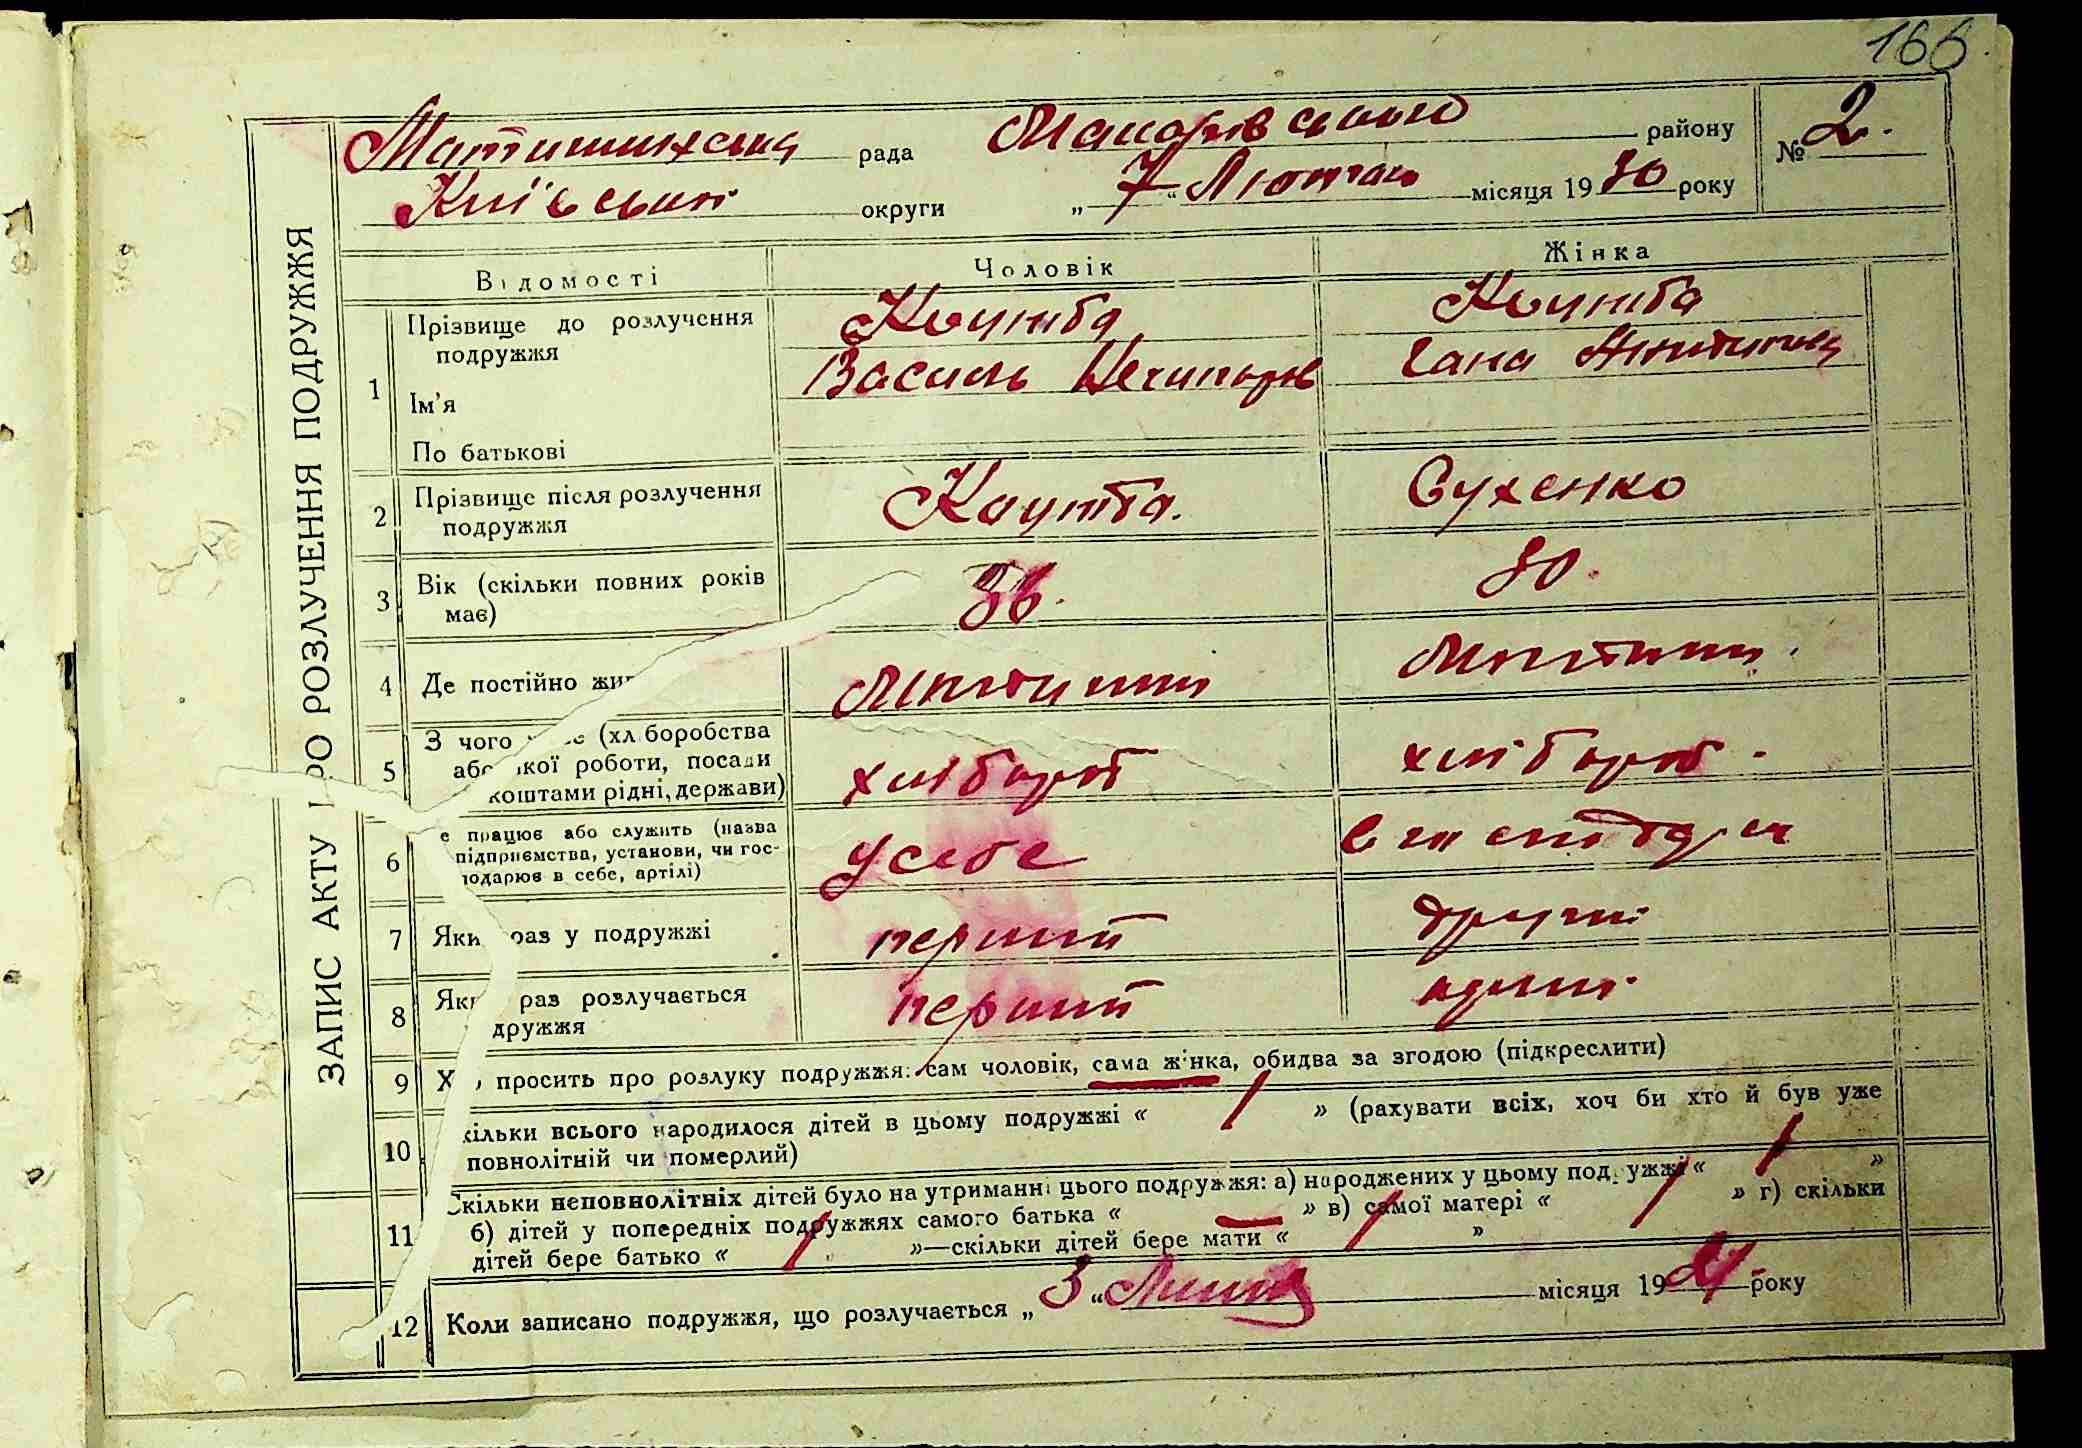 166
Макарівського району
№ 2.
рада
Київської округи „7“ Лютого місяця 1930 року
ЗАПИС АКТУ ПРО РОЗЛУЧЕННЯ ПОДРУЖЖЯ
Відомості Чоловік Жінка
1 Прізвище до розлучення
подружжя
Ім’я Василь Гана
По батькові
2 Прізвище після розлучення Сухенко
подружжя
3 Вік (скільки повних років 36. 30.
має)
4 Де постійно
5 З чого (хл боробства хлібороб хлібороб.
або якої роботи, посади
коштами рідні, держави)
6 е працює або служить (назва
підприємства, установи, чи гос- у себе
подарює в себе, артілі)
7 Який раз у подружжі перший другий
8 Який раз розлучається перший
дружжя
9 Х о просить про розлуку подружжя: сам чоловік, сама жінка, обидва за згодою (підкреслити)
10 кільки всього народилося дітей в цьому подружжі « / » (рахувати всіх, хоч би хто й був уже
повнолітній чи померлий)
11 Скільки неповнолітніх дітей було на утриманні цього подружжя: а) народжених у цьому под ужжі « / »
б) дітей у попередніх подружжях самого батька « — » в) самої матері « / » г) скільки
дітей бере батько « / »—скільки дітей бере мати « / »
12 Коли записано подружжя, що розлучається „3“ місяця 1924 року